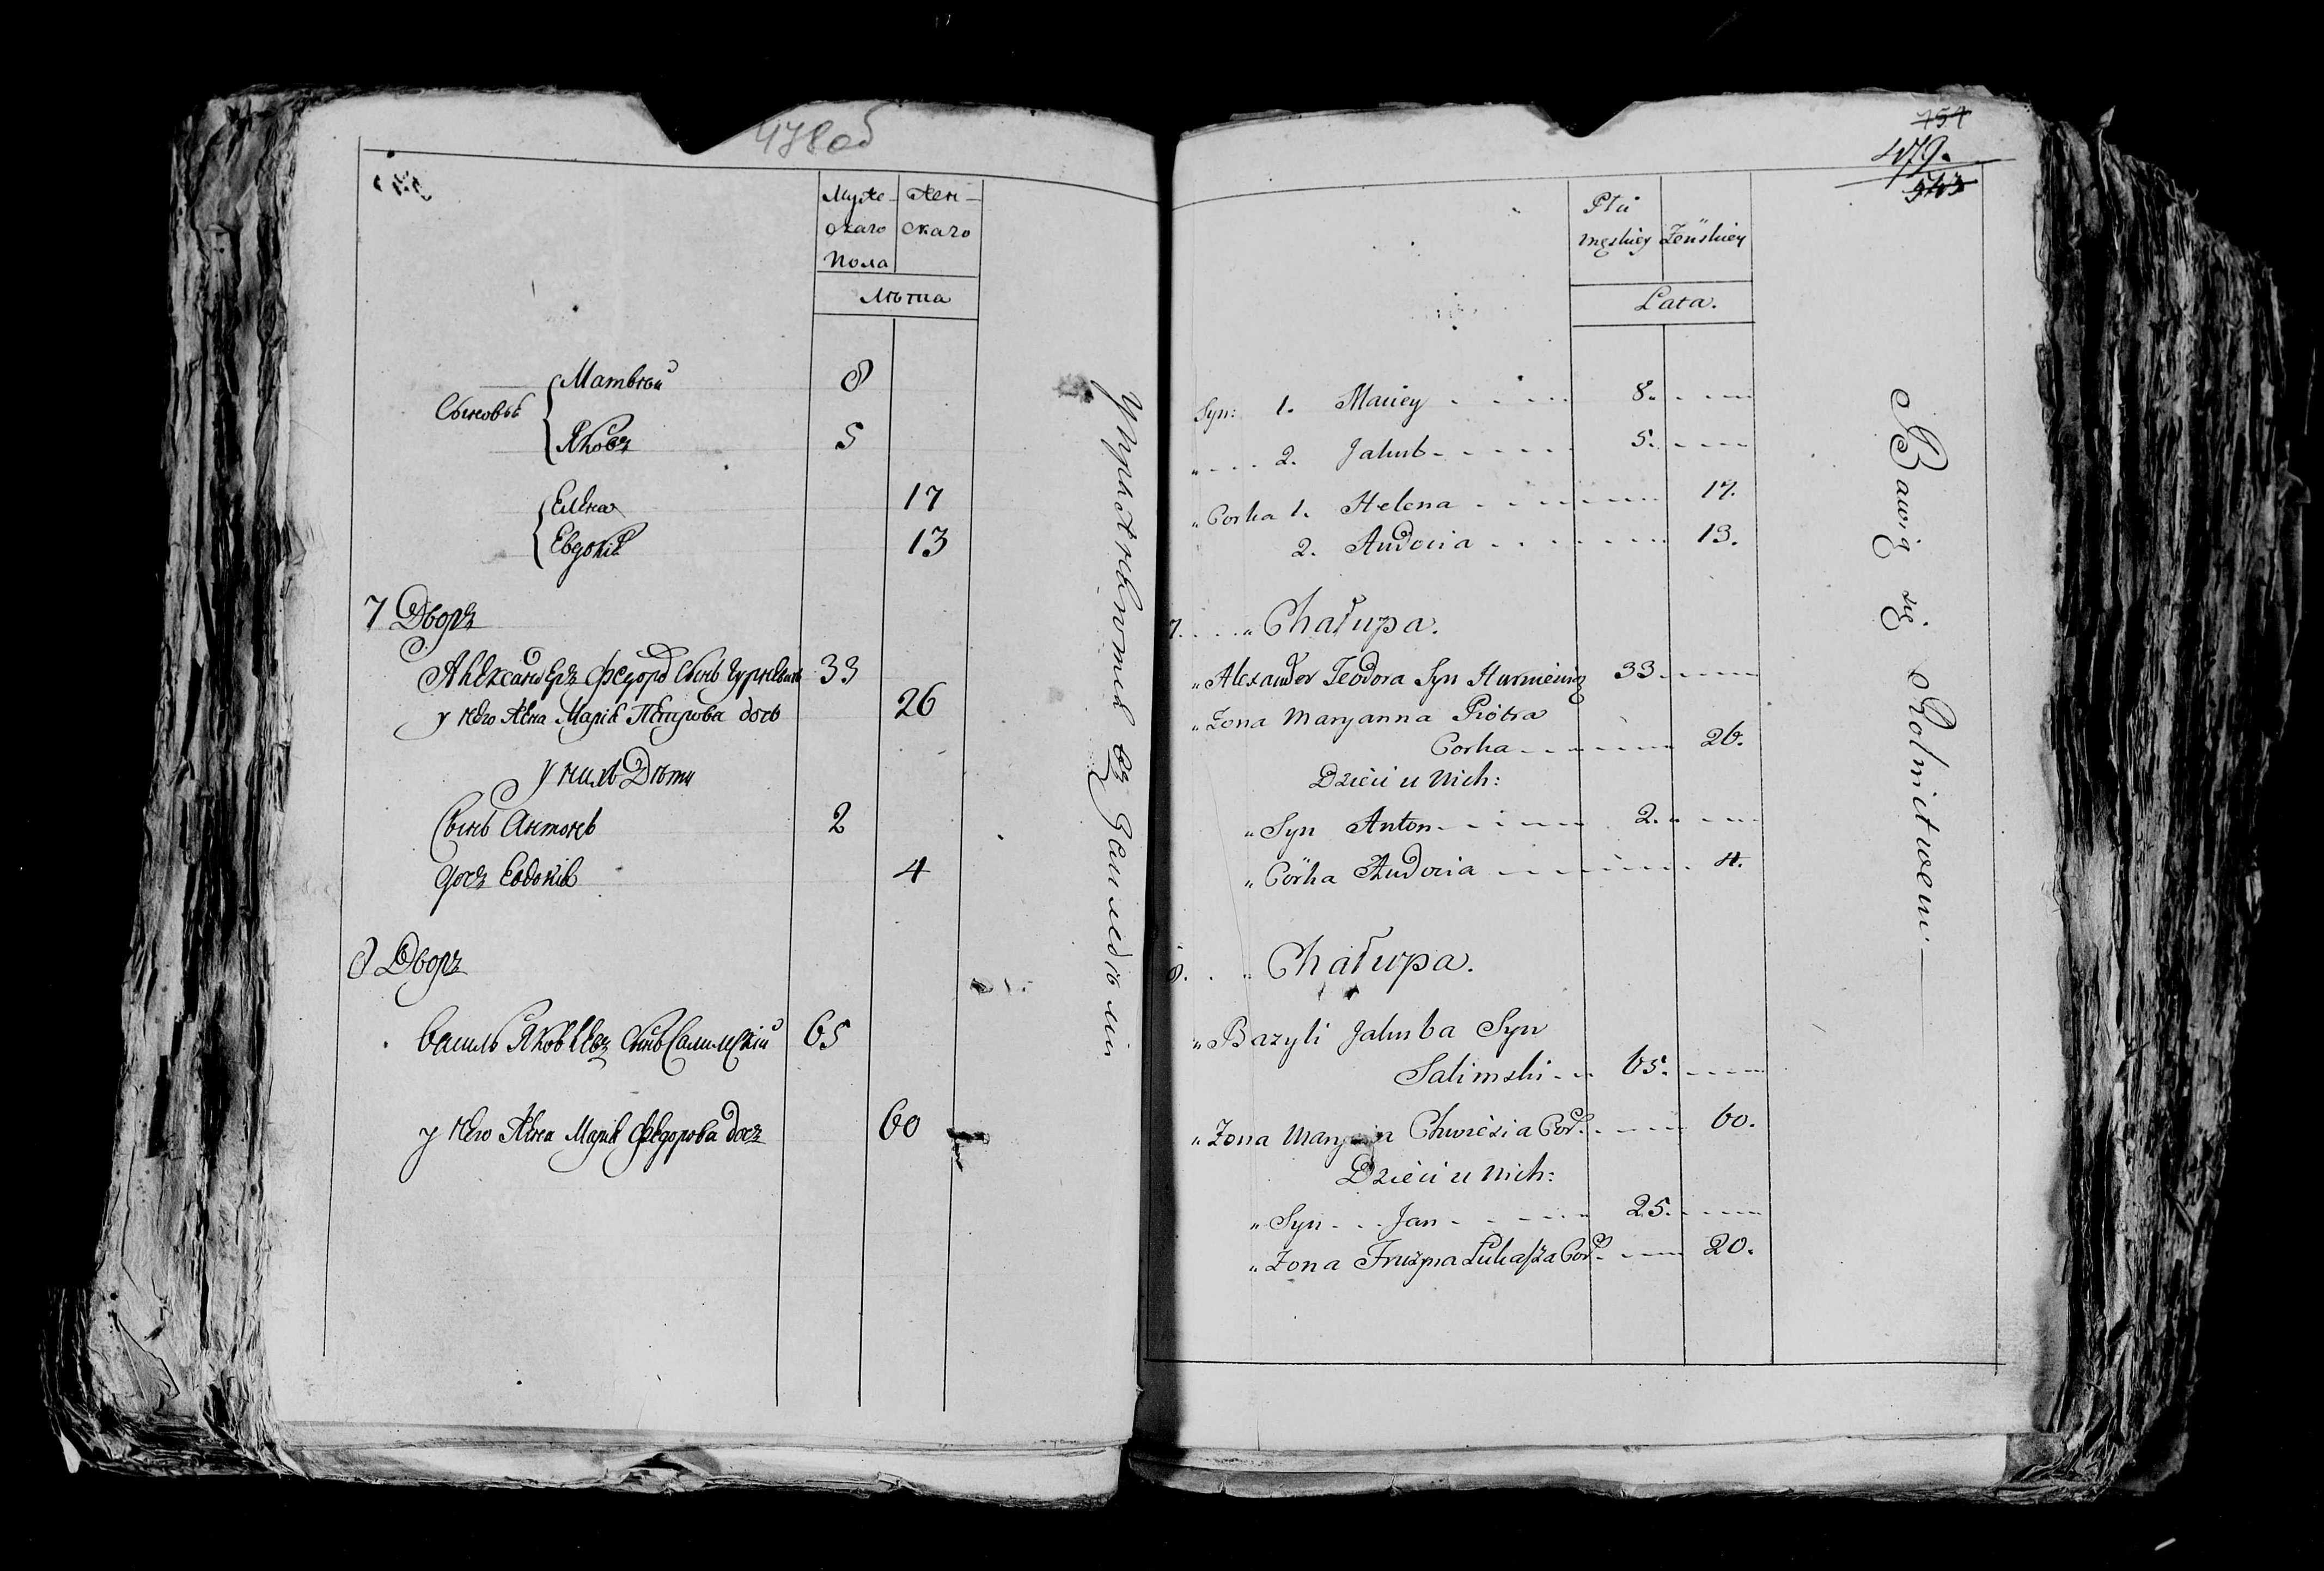 478об
Муже-
Жен-
скаго
скаго
Пола
Лѣта
Сыновья
Матвей
8
Яковъ
5
Елена
17
Евдокія
13
7 Дворъ
Александеръ Федора Сынъ
33
у него Жена Марія Петрова дочь
26
у нихъ Дѣти
Сынъ Антонъ
2
дочь Евдокія
4
8 Дворъ
Василь Яковлевъ Сынъ Салимскій
65
у него Жена Марія Федорова дочь
60
Упражняются въ Земледѣліи
479.
Płci
męskiey Zeńskiey
Lata.
Syn: 1. Maciey 8.
" 2. Jakub 5.
" Corka 1. Helena 17.
2. Audocia 13.
7. " Chałupa.
" Alexander Teodora Syn Hurniewicz 33.
" Zona Maryanna Piotra
Corka 26.
Dzieci u Nich:
" Syn Anton 2.
" Córka Audocia 4.
8. " Chałupa.
" Bazyli Jakuba Syn
Salimski 65.
" Zona Cor. 60.
Dzieci u Nich:
" Syn Jan 25.
" Zona Łukasza Cor. 20.
Bawią się Rolnictwem.